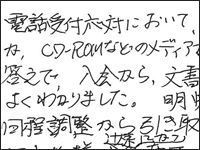 電話受付応対において、
か、CD-ROMなどのメディアで
答えて、入会から、文書
よくわかりました。明県
日程調整から引き取